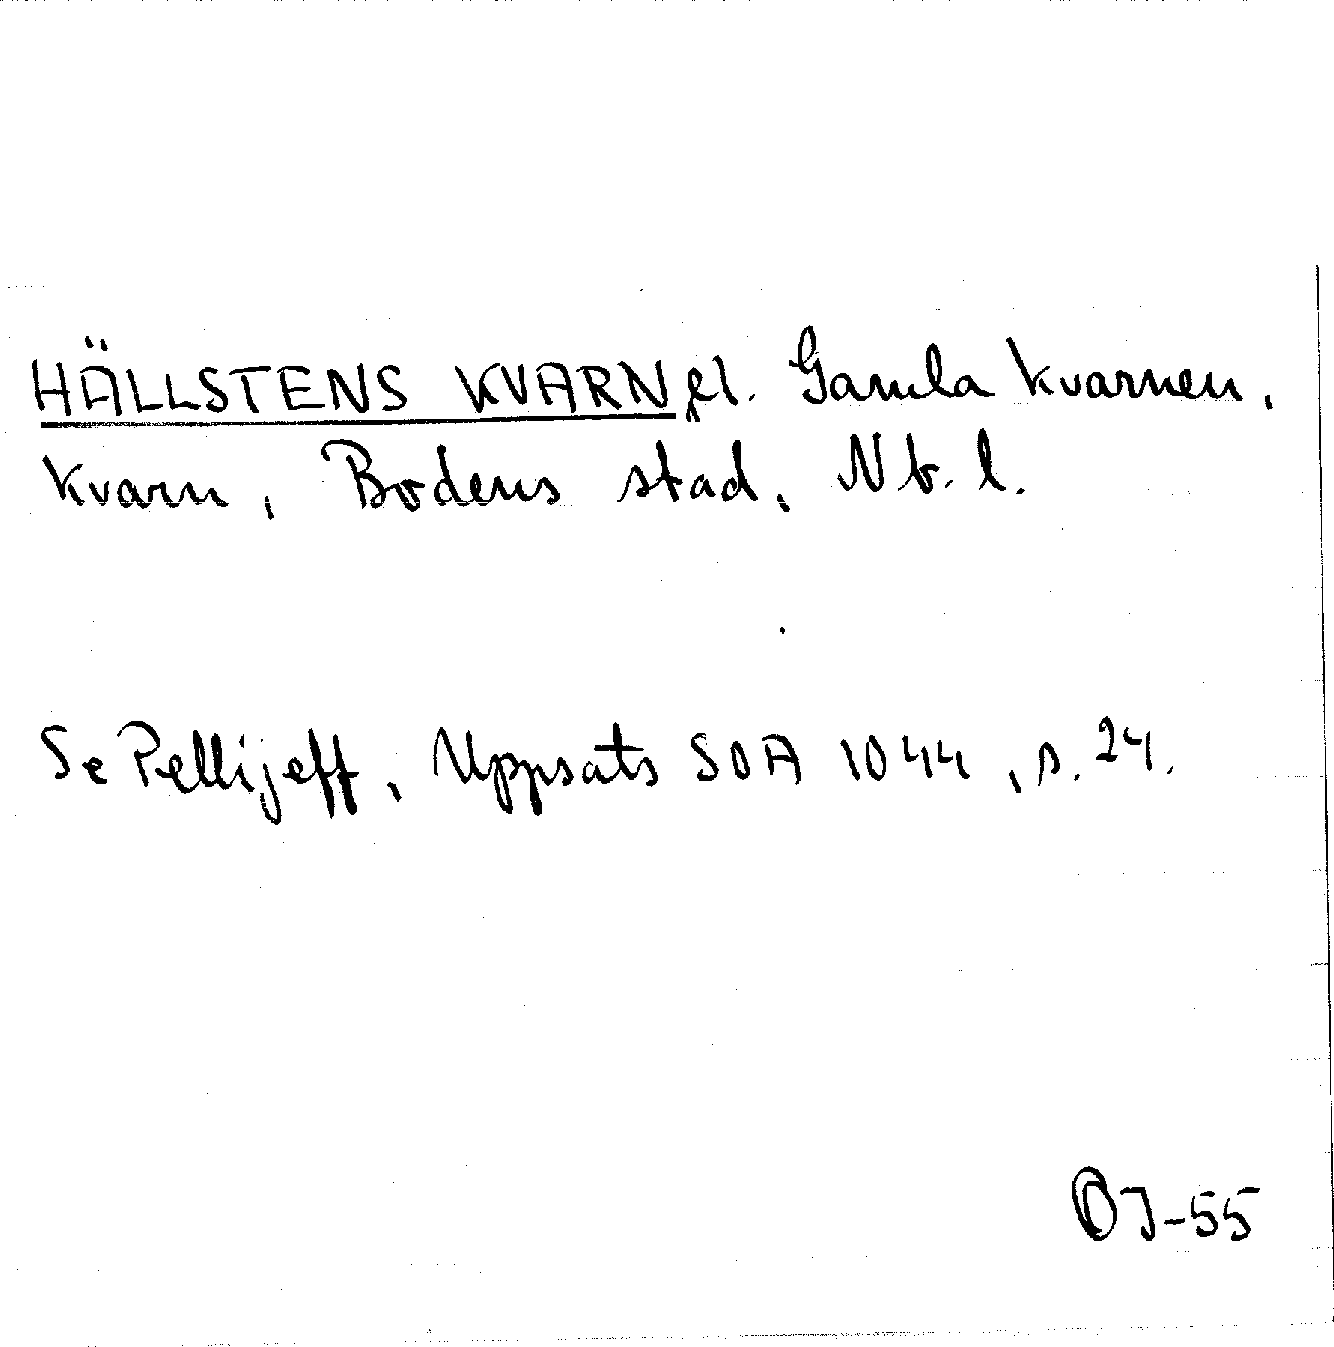 HÄLLSTENS KVARN el. Gamla kvarnen,
kvarn, Bodens stad, Nb. l.
Se Pellijeff, Uppsats SOA 1044, s. 24.
OJ-55